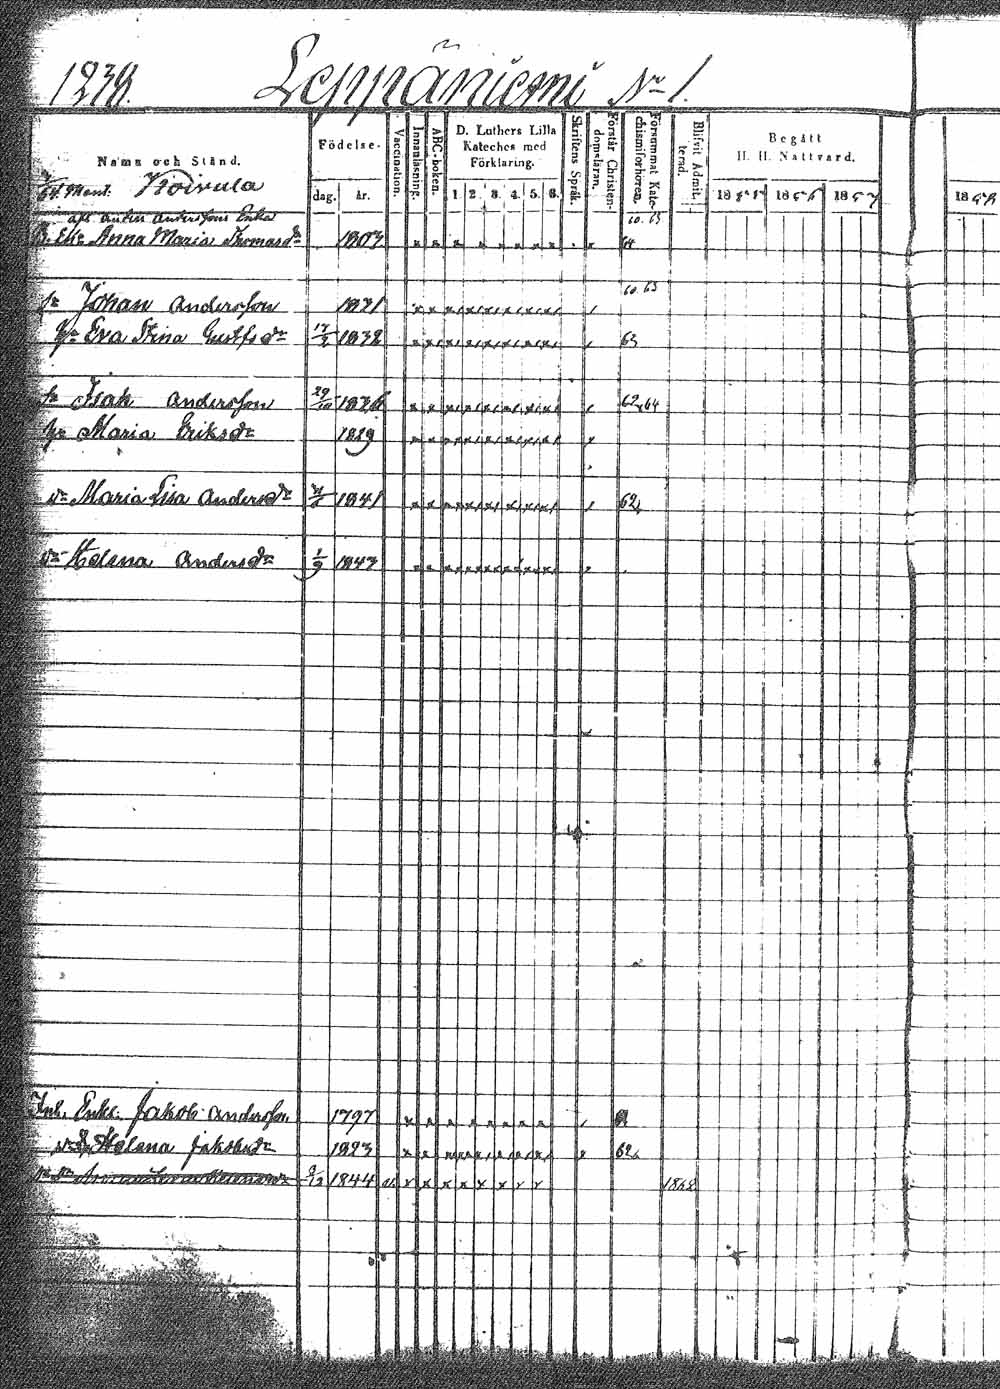 1239. Leppäniemi No 1.
Namn och Stånd.
Födelse-
dag.
år.
Vaccination.
Innanläsning.
ABC-boken.
D. Luthers Lilla
Kateches med
Förklaring.
1 2 3 4 5 6.
Skriftens Språk.
Förstår Christen-
domsläran.
Försummat Kate-
chismiförhören.
Blifvit Admit-
terad.
Begått
H. H. Nattvard.
1855 1856 1857 1858
Mant. Koivula
Anders Anderssons Enka
60. 63
Anna Maria Thomasdr 1803 64
60 63
Sn Johan Andersson 1821
Hu Eva Stina Gustfsdr 1838 63
Sn Isak Andersson 29/10 62, 64
Hu Maria Eriksdr 1829
Dr Maria Lisa Andersdr 1841 62
Dr Helena Andersdr 1/9 1843
Inh. Enkl. Jakob Andersson 1797
Helena Jakobsdr 1823 62
1844 1862